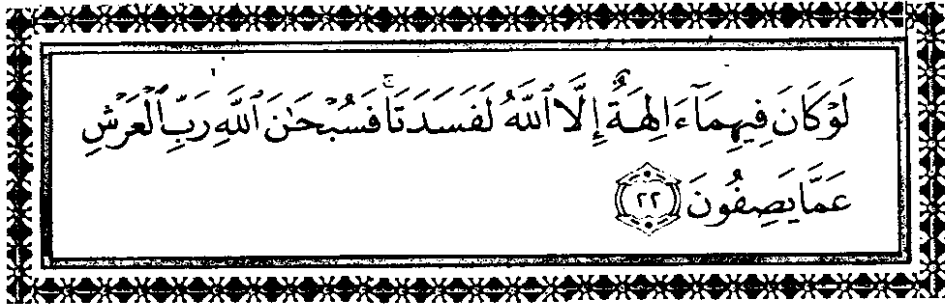 لَوْ كَانَ فِيهِمَآ ءَالِهَةٌ إِلَّا ٱللَّهُ لَفَسَدَتَا ۚ فَسُبْحَٰنَ ٱللَّهِ رَبِّ ٱلْعَرْشِ
عَمَّا يَصِفُونَ ٢٢